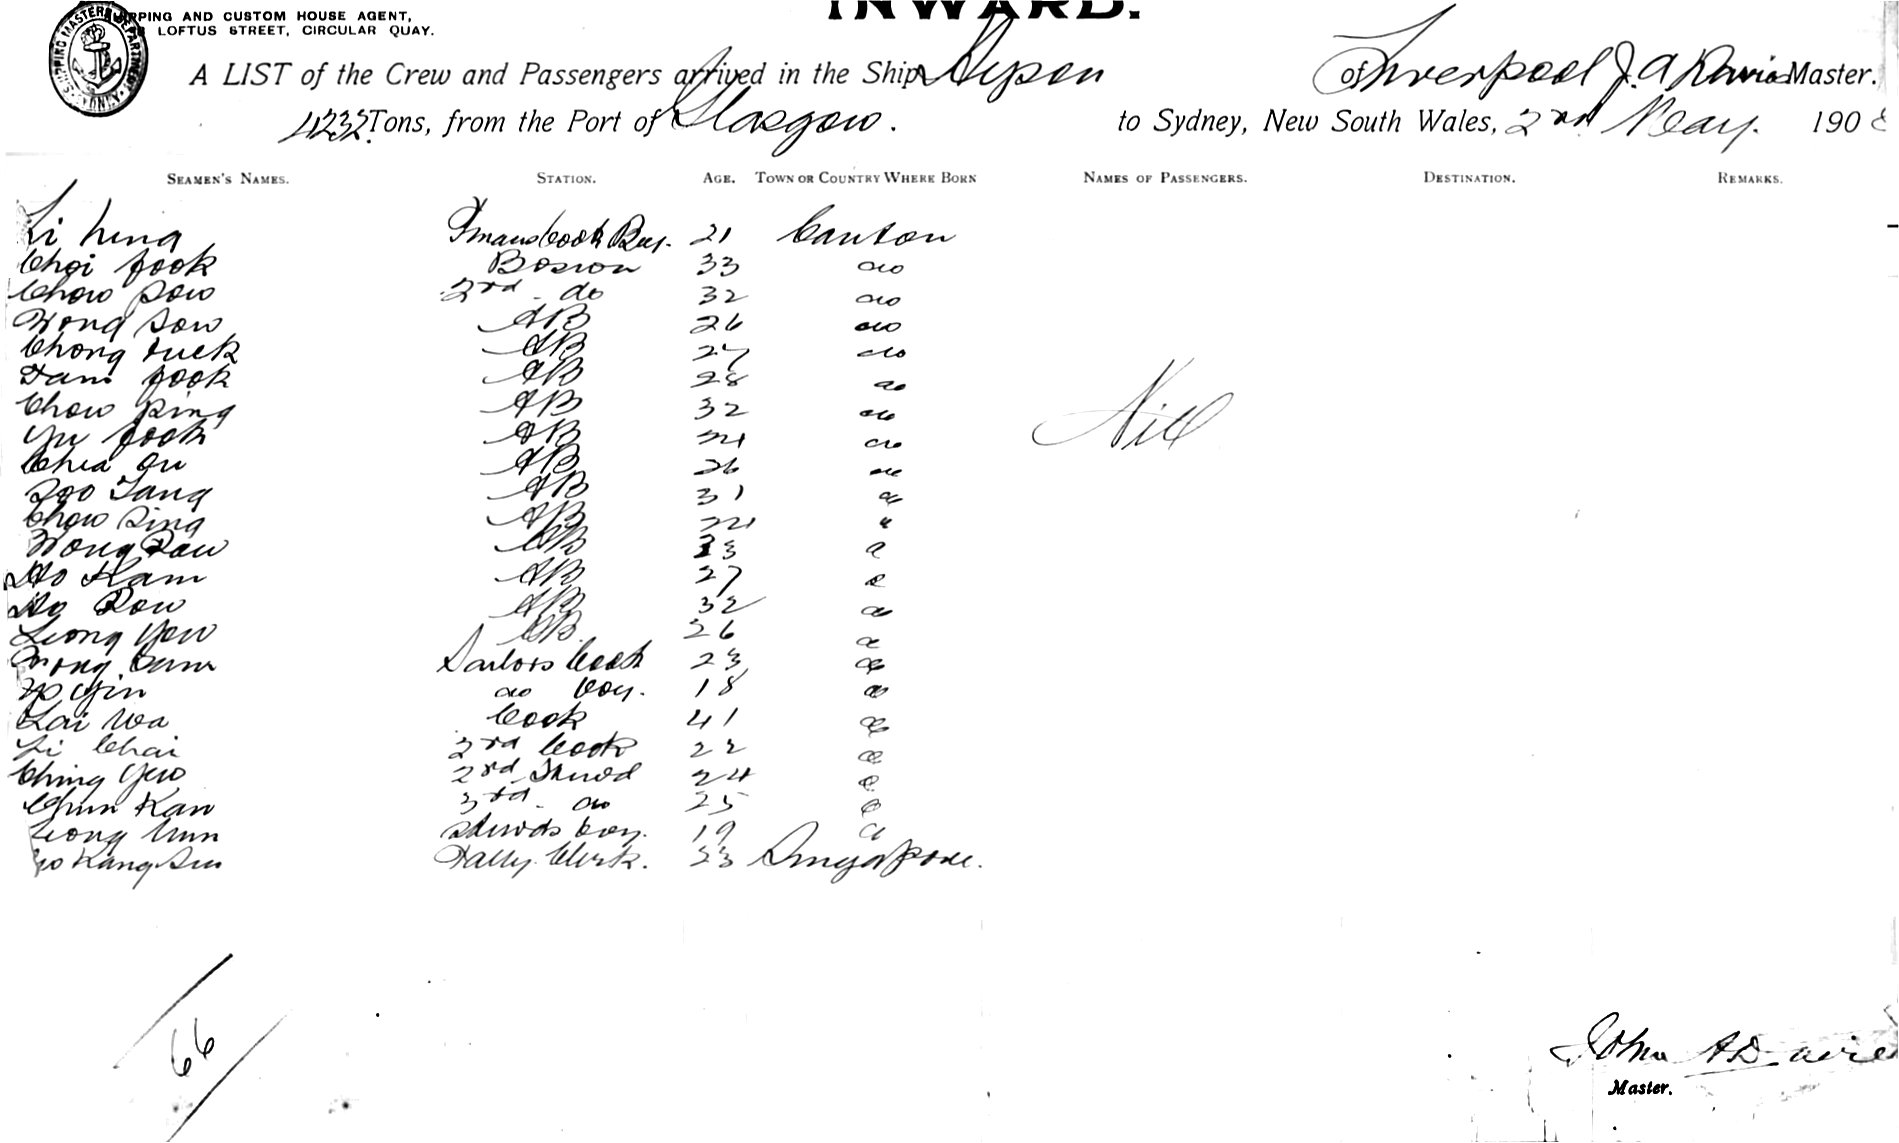 INWARD.
SHIPPING MASTER'S DEPARTMENT SYDNEY
PING AND CUSTOM HOUSE AGENT,
LOFTUS STREET, CIRCULAR QUAY.
A LIST of the Crew and Passengers arrived in the Ship of Liverpool J. A Davies Master.
4232 Tons, from the Port of Glasgow. to Sydney, New South Wales, 2nd May. 190
SEAMEN'S NAMES. STATION. AGE. TOWN OR COUNTRY WHERE BORN NAMES OF PASSENGERS. DESTINATION. REMARKS.
Li Cook Boy. 21 Canton
Choi fook Bosun 33 do
Chow Sow 2nd do 32 do
Wong Sow AB 26 do
Chong AB 27 do
Tam fook AB 28 do
Chow Ping AB 32 do
Yu fook AB do
Chea On AB 26 do
Soo Tang AB 31
Chow Sing AB
Wong AB 33
Ho Kam AB 27
Ho AB 32 do
Leong Yow AB 26
Wong Sum Sailors Cook 23 do
Yin do boy. 18 do
Lai Wa Cook 41 do
Li Chai 2nd Cook 22
Ching Yew 2nd Stewd 24
Chun Kan 3rd do 25
Leong Stewds boy. 19
Kang Tally Clerk. 23 Singapore.
Nil
66
John A Davies
Master.